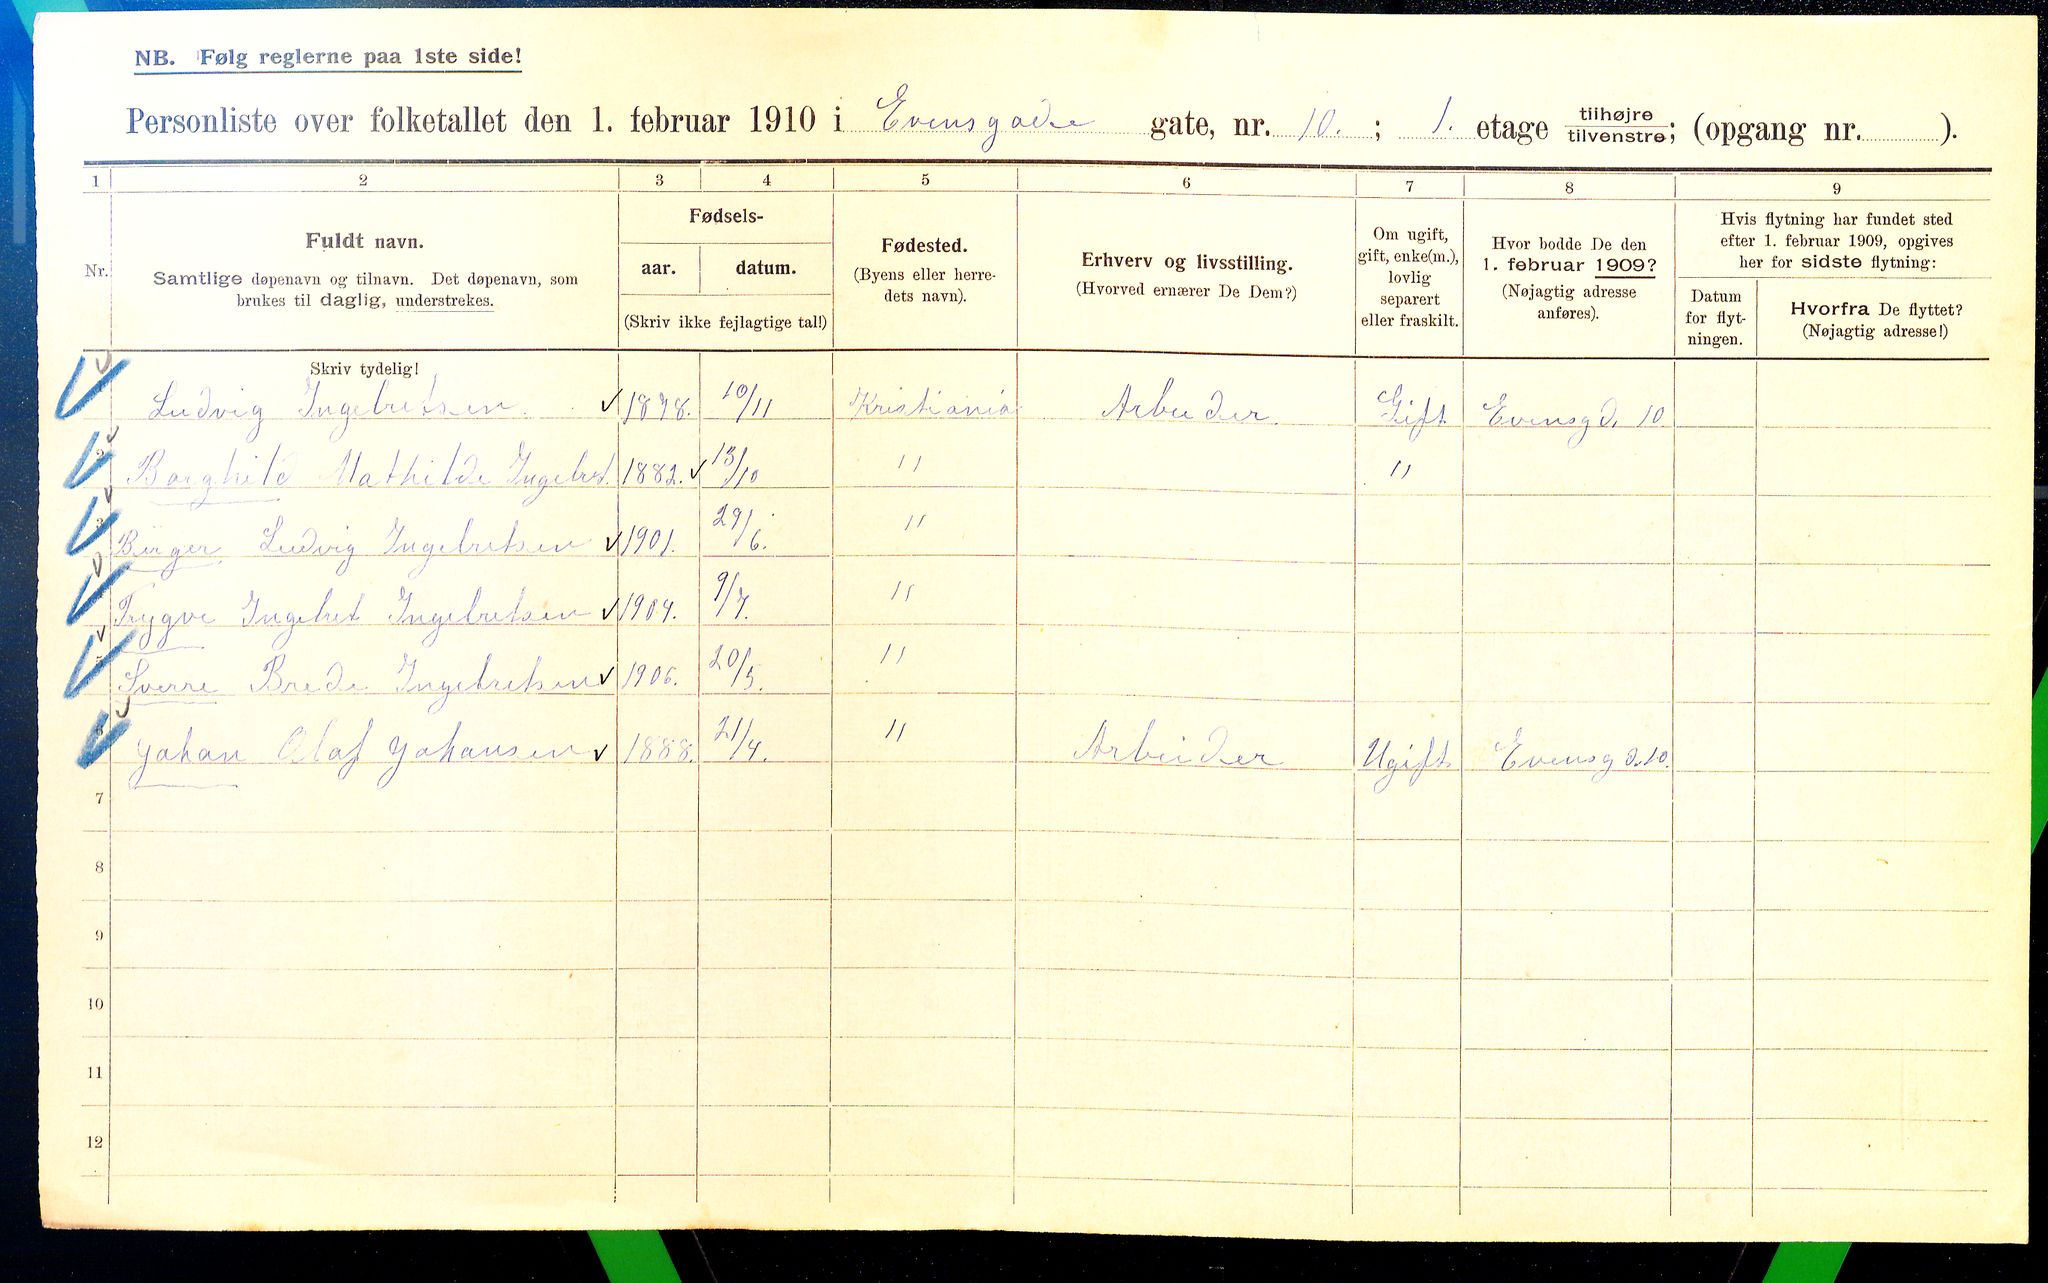 NB. Følg reglerne paa 1ste side!
Personliste over folketallet den 1. februar 1910 i Evensgade gate, nr. 10. ; 1. etage tilhøjre tilvenstre; (opgang nr. ).
1 2 3 4 5 6 7 8 9
Nr.
Fuldt navn.
Samtlige døpenavn og tilnavn. Det døpenavn, som
brukes til daglig, understrekes.
Fødsels-
aar. datum.
(Skriv ikke fejlagtige tal!)
Fødested.
(Byens eller herre-
dets navn).
Erhverv og livsstilling.
(Hvorved ernærer De Dem?)
Om ugift,
gift, enke(m.),
lovlig
separert
eller fraskilt.
Hvor bodde De den
1. februar 1909?
(Nøjagtig adresse
anføres).
Hvis flytning har fundet sted
efter 1. februar 1909, opgives
her for sidste flytning:
Datum
for flyt-
ningen.
Hvorfra De flyttet?
(Nøjagtig adresse!)
Skriv tydelig!
Ludvig Ingebretsen 1878. 10/11 Kristiania Arbeider Gift Evensgd. 10
2 Borghild Mathilde Ingebret. 1882. 13/10 " "
3 Birger Ludvig Ingebretsen 1901. 29/6. "
Trygve Ingebret Ingebretsen 1904. 9/7. "
5 Sverre Brede Ingebretsen 1906. 20/5. "
6 Johan Olaf Johansen 1888. 21/4. " Arbeider Ugift Evensgd. 10.
7
8
9
10
11
12